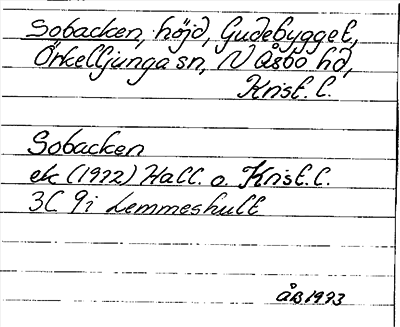 Sobacken, höjd, Gudebygget,
Örkelljunga sn, N Åsbo hd,
Krist. l.
Sobacken
ek (1972) Hall. o. Krist. l.
3C 9i Lemmeshult
ÅB 1973